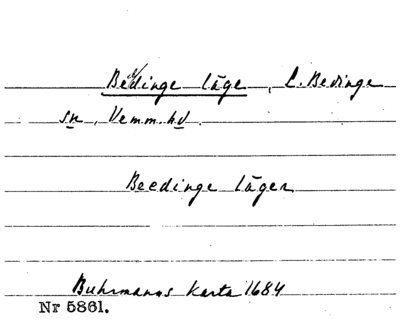 Bedinge läge, L. Bedinge
sn, Vemm. hd.
Beedinge läger
Buhrmanns karta 1684
Nr 5861.